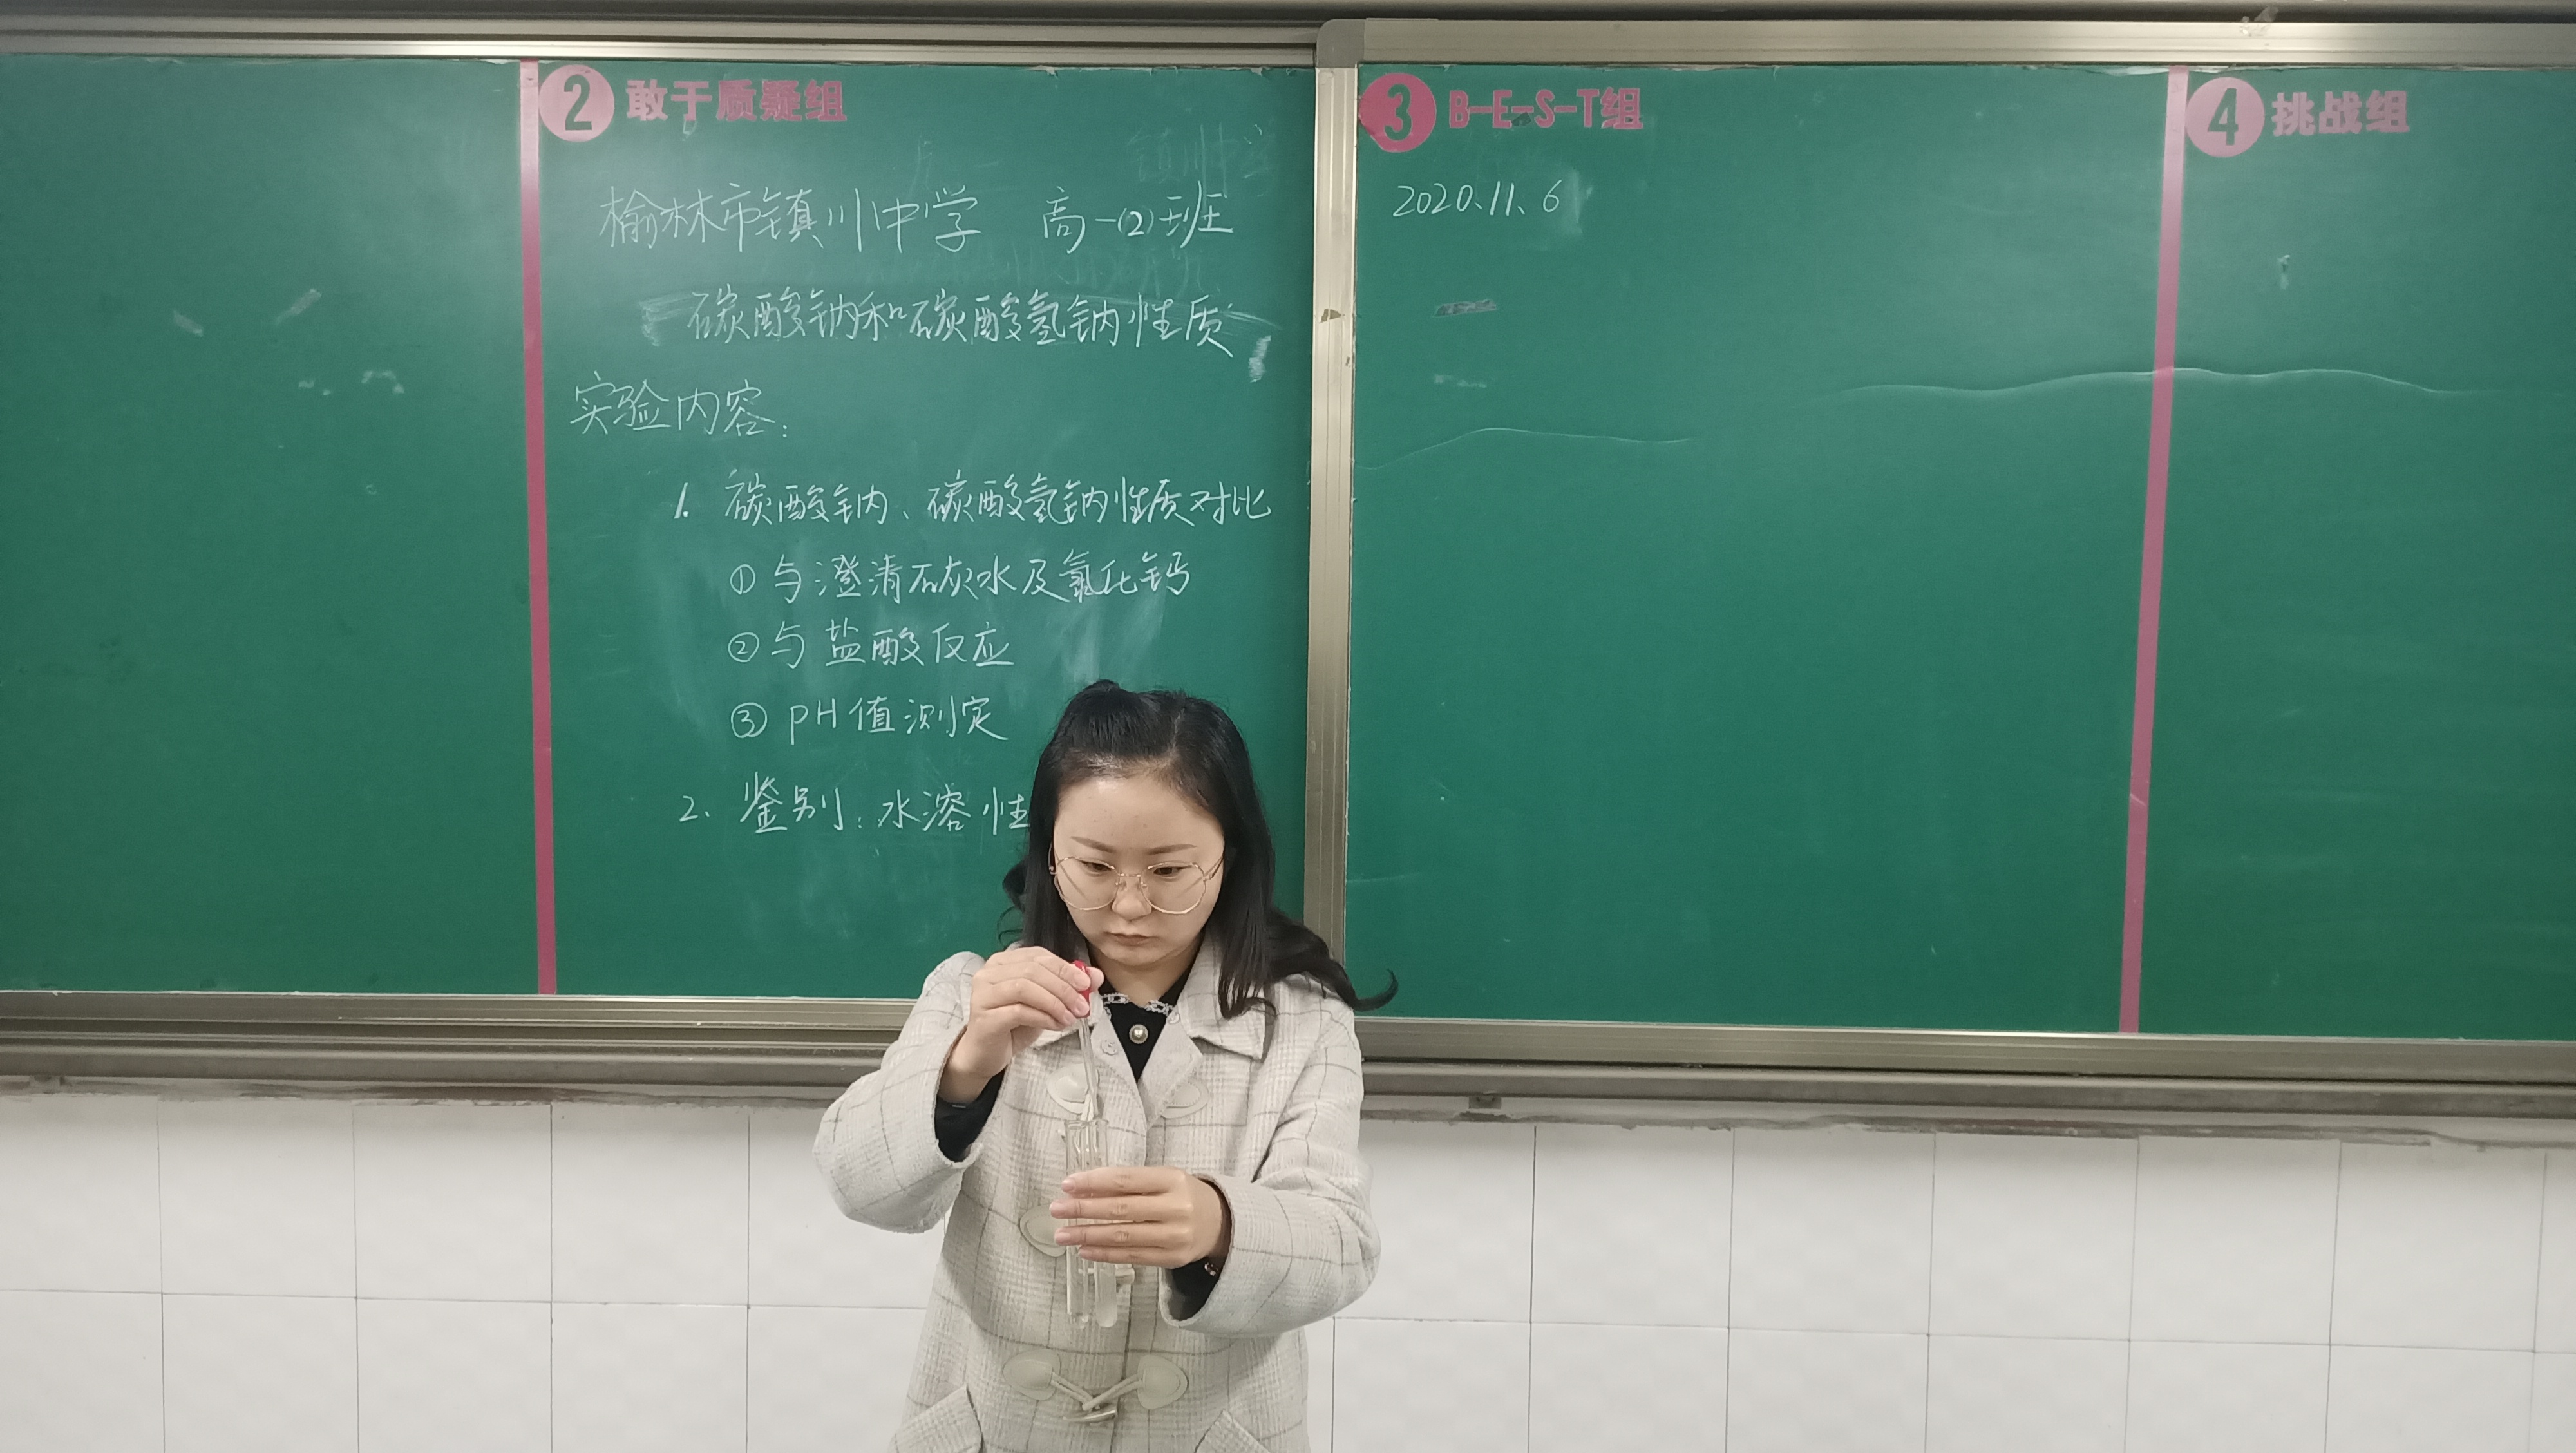 2 敢于质疑组
榆林市镇川中学 高一(2)班
碳酸钠和碳酸氢钠性质
实验内容:
1. 碳酸钠、碳酸氢钠性质对比
①与澄清石灰水及氯化钙
②与盐酸反应
③ pH值测定
2. 鉴别:水溶性
3 B-E-S-T组
2020.11.6
4 挑战组